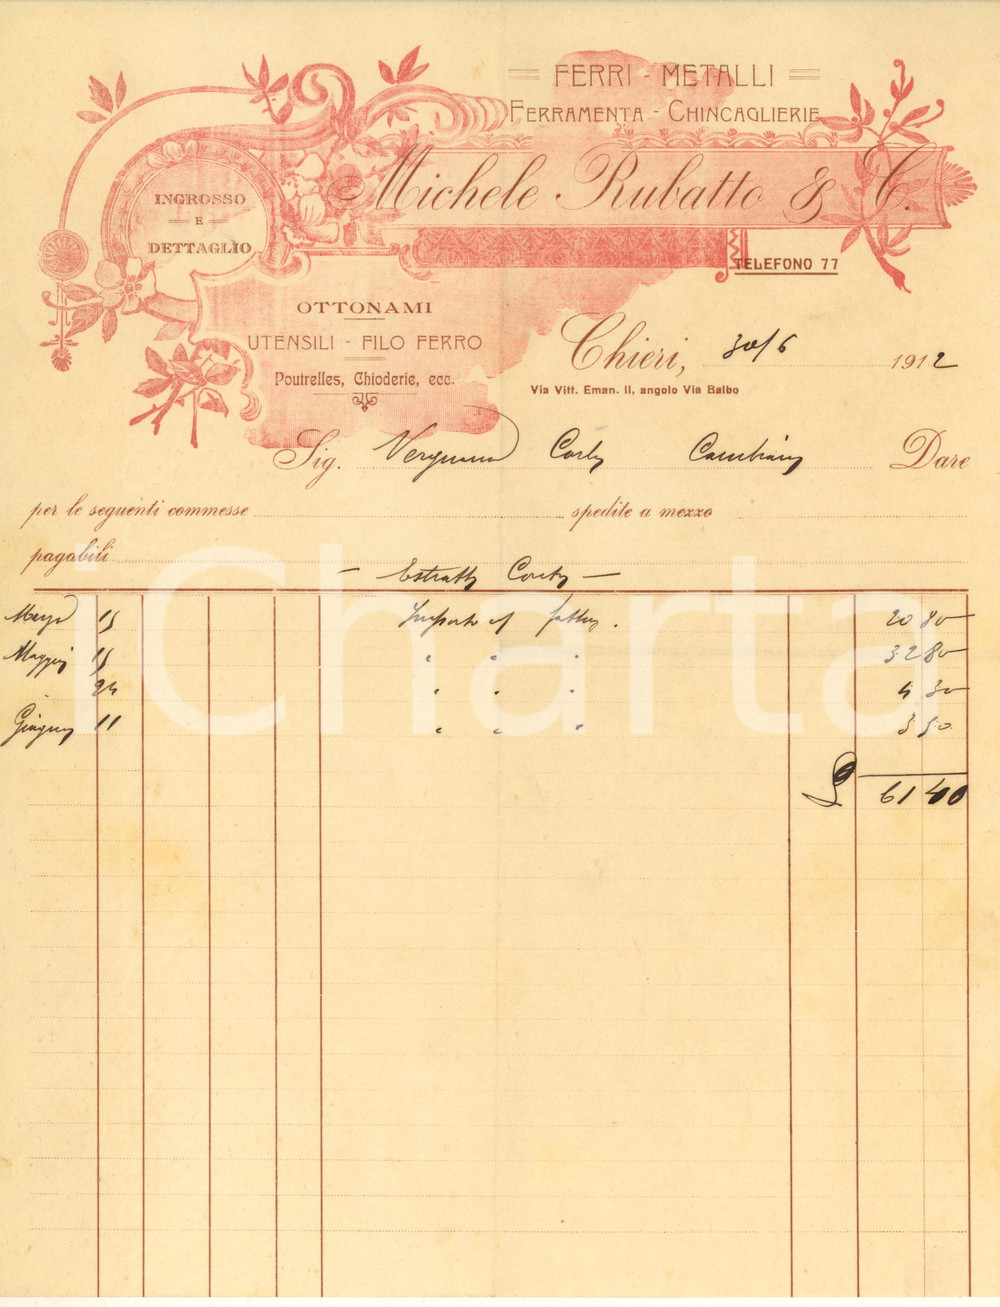 FERRI - METALLI
FERRAMENTA - CHINCAGLIERIE
Michele Rubatto & C.
INGROSSO
E
DETTAGLIO
TELEFONO 77
OTTONAMI
UTENSILI - FILO FERRO
Poutrelles, Chioderie, ecc.
Chieri, 30/6 1912
Via Vitt. Eman. II, angolo Via Balbo
Sig. Vergnano Carlo Cambiano Dare
per le seguenti commesse spedite a mezzo
pagabili
— Estratto Conto —
15 Importo 20 80
Maggio 15 " " " 32 80
24 " " " 4 30
Giugno 11 " " " 3 50
£ 61 40
iCharta